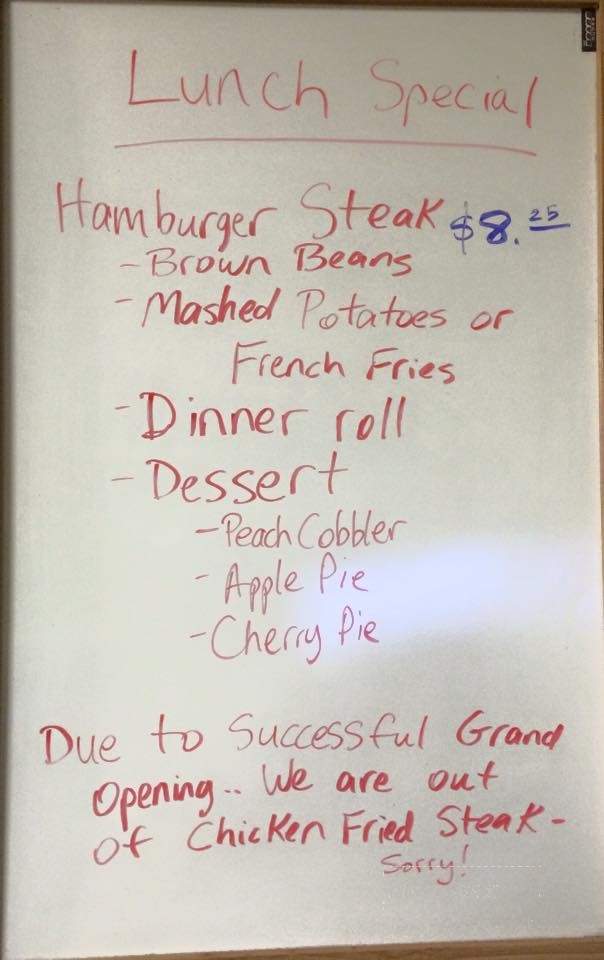 Lunch Special
Hamburger Steak $8.25
- Brown Beans
- Mashed Potatoes or
French Fries
- Dinner roll
- Dessert
- Peach Cobbler
- Apple Pie
- Cherry Pie
Due to Successful Grand
Opening.. We are out
of Chicken Fried Steak -
Sorry!